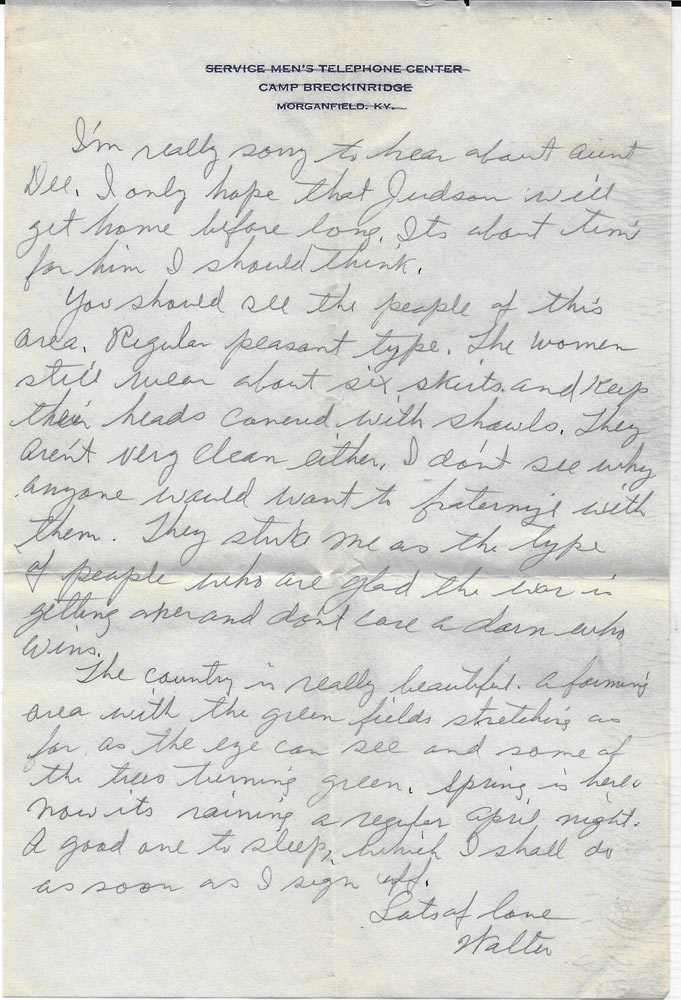 SERVICE MEN'S TELEPHONE CENTER
CAMP BRECKINRIDGE
MORGANFIELD, KY.
I'm really sorry to hear about aunt
Dee. I only hope that Judson will
get home before long. Its about time
for him I should think.
You should see the people of this
area. Regular peasant type. The women
still wear about six skirts and keep
their heads covered with shawls. They
aren't very clean either. I don't see why
anyone would want to fraternize with
them. They strike me as the type
of people who are glad the war is
getting over and don't care a darn who
wins.
The country is really beautiful. A farming
area with the green fields stretching as
far as the eye can see and some of
the trees turning green. Spring is here.
Now its raining a regular April night.
A good one to sleep, which I shall do
as soon as I sign off.
Lots of love
Walter